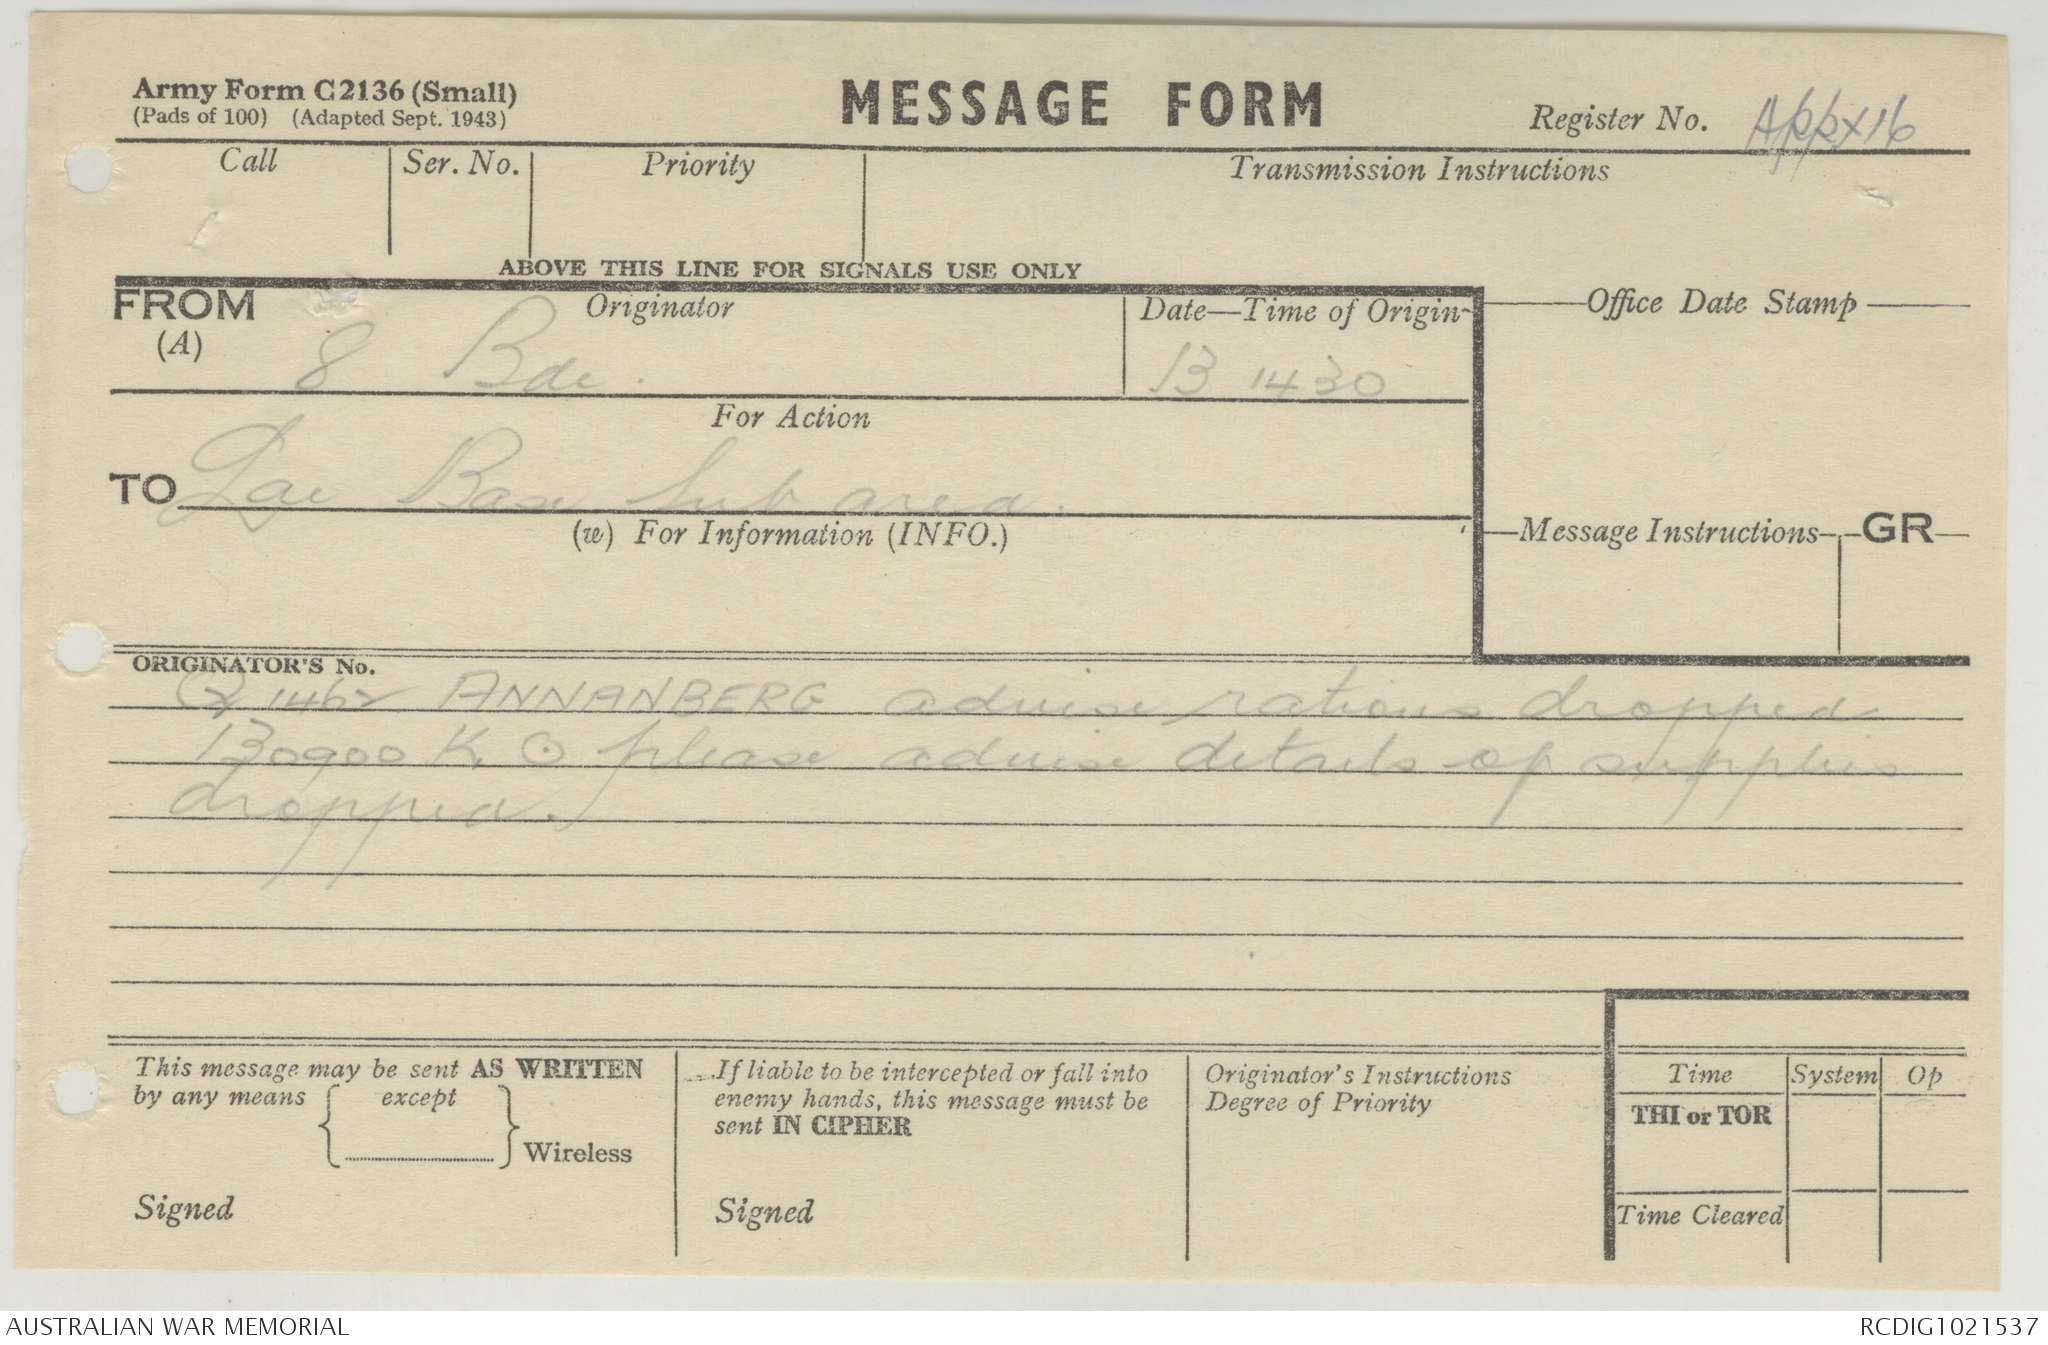 Army Form C2136 (Small)
(Pads of 100) (Adapted Sept. 1943)
MESSAGE FORM
Register No. Appx 16
Call
Ser. No.
Priority
Transmission Instructions
ABOVE THIS LINE FOR SIGNALS USE ONLY
FROM
(A)
Originator
8 Bde.
Date—Time of Origin
13 1430
Office Date Stamp
For Action
TO Lae Base Sub area.
(w) For Information (INFO.)
Message Instructions
GR
ORIGINATOR'S No.
Q 1462 ANNANBERG advise rations dropped
130900 K. O please advise details of supplies
dropped.
This message may be sent AS WRITTEN
by any means except
Wireless
Signed
If liable to be intercepted or fall into
enemy hands, this message must be
sent IN CIPHER
Signed
Originator's Instructions
Degree of Priority
Time
System
Op
THI or TOR
Time Cleared
AUSTRALIAN WAR MEMORIAL
RCDIG1021537